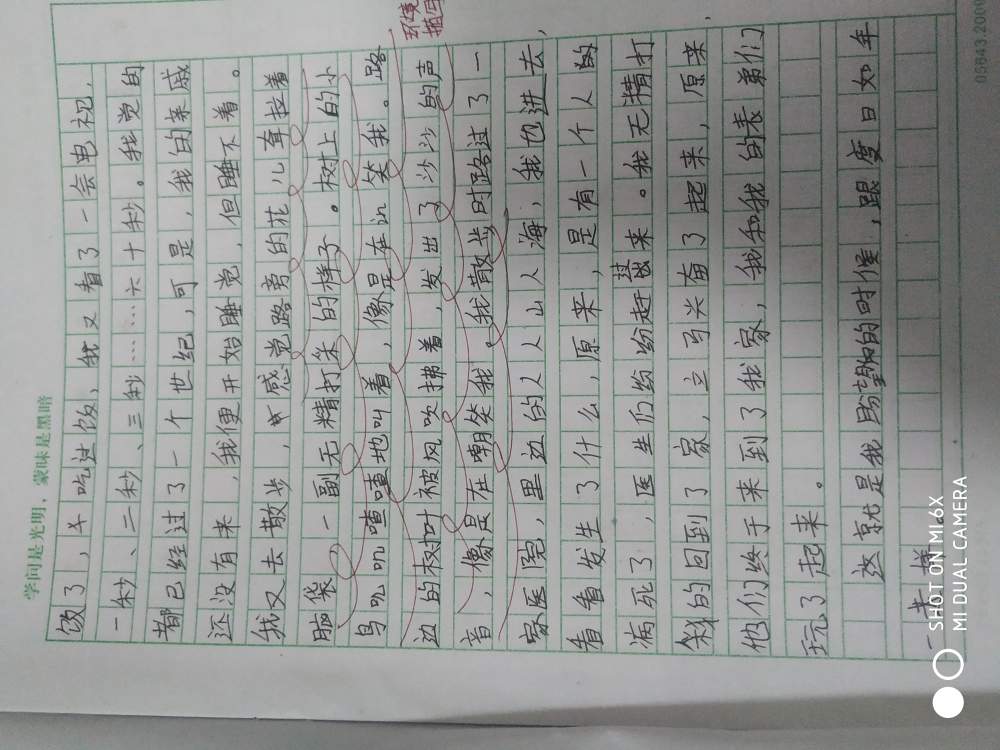 学问是光明，蒙昧是黑暗
环境
描写
饭了，午吃过饭，我又看了一会电视，
一秒、二秒、三秒……六十秒。我觉的
都已经过了一个世纪，可是，我的亲戚
还没有来，我便开始睡觉，但睡不着。
我又去散步，感觉路旁的花儿耷拉着
脑袋，一副无精打采的样子。树上的小
鸟叽叽喳喳地叫着，像是在讥笑我。路
边的树叶被风吹拂着，发出了沙沙的声
音，像是在嘲笑我。我散步时路过了一
家医院，里边的人人山人海，我也进去，
看看发生了什么，原来，是有一个人的
病死了，医生们纷纷赶出来。我无精打
斜的回到了家，立马兴奋了起来，原来
他们终于来到了我家，我和我的表弟们
玩了起来。
这就是我盼望的时候，跟度日如年
一样
05643.2009
SHOT ON MI 6X
MI DUAL CAMERA